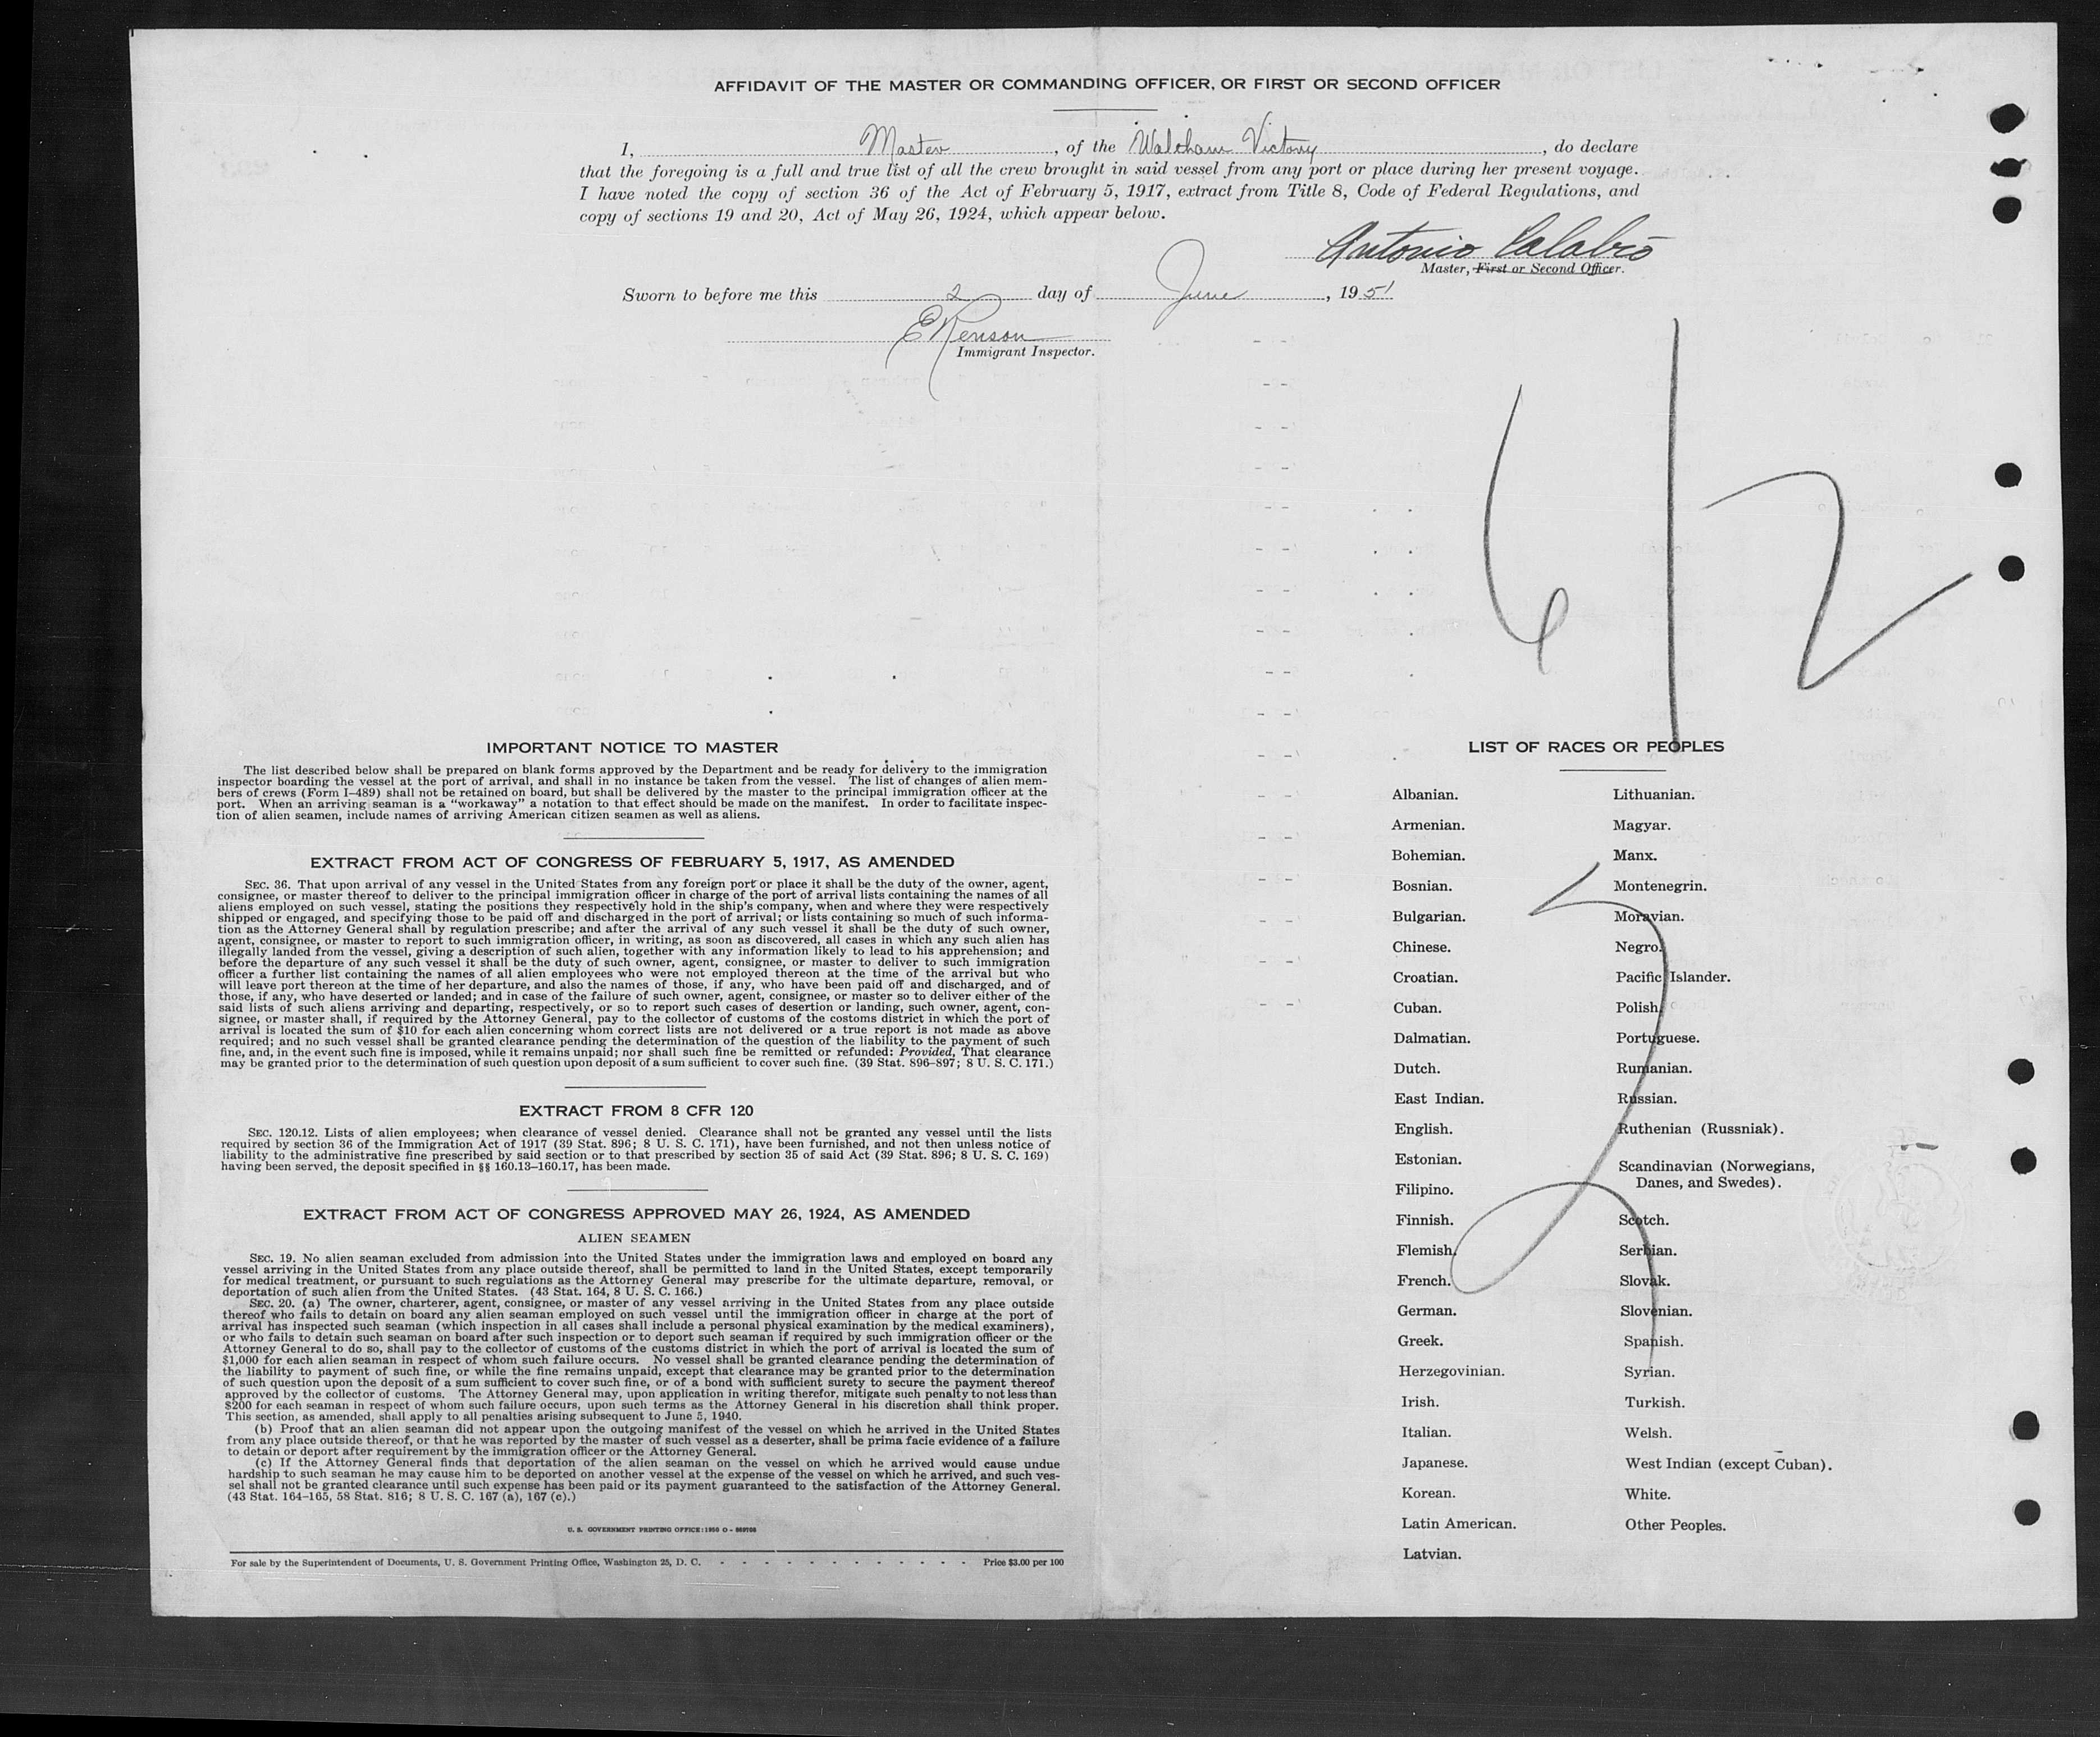 AFFIDAVIT OF THE MASTER OR COMMANDING OFFICER, OR FIRST OR SECOND OFFICER
I, Master, of the Walcham Victory, do declare
that the foregoing is a full and true list of all the crew brought in said vessel from any port or place during her present voyage.
I have noted the copy of section 36 of the Act of February 5, 1917, extract from Title 8, Code of Federal Regulations, and
copy of sections 19 and 20, Act of May 26, 1924, which appear below.
Antonio Calabrò
Master, First or Second Officer.
Sworn to before me this 2 day of June, 1951
Immigrant Inspector.
6/2
IMPORTANT NOTICE TO MASTER
The list described below shall be prepared on blank forms approved by the Department and be ready for delivery to the immigration
inspector boarding the vessel at the port of arrival, and shall in no instance be taken from the vessel. The list of changes of alien mem-
bers of crews (Form I-489) shall not be retained on board, but shall be delivered by the master to the principal immigration officer at the
port. When an arriving seaman is a "workaway" a notation to that effect should be made on the manifest. In order to facilitate inspec-
tion of alien seamen, include names of arriving American citizen seamen as well as aliens.
EXTRACT FROM ACT OF CONGRESS OF FEBRUARY 5, 1917, AS AMENDED
SEC. 36. That upon arrival of any vessel in the United States from any foreign port or place it shall be the duty of the owner, agent,
consignee, or master thereof to deliver to the principal immigration officer in charge of the port of arrival lists containing the names of all
aliens employed on such vessel, stating the positions they respectively hold in the ship's company, when and where they were respectively
shipped or engaged, and specifying those to be paid off and discharged in the port of arrival; or lists containing so much of such informa-
tion as the Attorney General shall by regulation prescribe; and after the arrival of any such vessel it shall be the duty of such owner,
agent, consignee, or master to report to such immigration officer, in writing, as soon as discovered, all cases in which any such alien has
illegally landed from the vessel, giving a description of such alien, together with any information likely to lead to his apprehension; and
before the departure of any such vessel it shall be the duty of such owner, agent, consignee, or master to deliver to such immigration
officer a further list containing the names of all alien employees who were not employed thereon at the time of the arrival but who
will leave port thereon at the time of her departure, and also the names of those, if any, who have been paid off and discharged, and of
those, if any, who have deserted or landed; and in case of the failure of such owner, agent, consignee, or master so to deliver either of the
said lists of such aliens arriving and departing, respectively, or so to report such cases of desertion or landing, such owner, agent, con-
signee, or master shall, if required by the Attorney General, pay to the collector of customs of the costoms district in which the port of
arrival is located the sum of $10 for each alien concerning whom correct lists are not delivered or a true report is not made as above
required; and no such vessel shall be granted clearance pending the determination of the question of the liability to the payment of such
fine, and, in the event such fine is imposed, while it remains unpaid; nor shall such fine be remitted or refunded: Provided, That clearance
may be granted prior to the determination of such question upon deposit of a sum sufficient to cover such fine. (39 Stat. 896-897; 8 U. S. C. 171.)
EXTRACT FROM 8 CFR 120
SEC. 120.12. Lists of alien employees; when clearance of vessel denied. Clearance shall not be granted any vessel until the lists
required by section 36 of the Immigration Act of 1917 (39 Stat. 896; 8 U. S. C. 171), have been furnished, and not then unless notice of
liability to the administrative fine prescribed by said section or to that prescribed by section 35 of said Act (39 Stat. 896; 8 U. S. C. 169)
having been served, the deposit specified in §§ 160.13-160.17, has been made.
EXTRACT FROM ACT OF CONGRESS APPROVED MAY 26, 1924, AS AMENDED
ALIEN SEAMEN
SEC. 19. No alien seaman excluded from admission into the United States under the immigration laws and employed on board any
vessel arriving in the United States from any place outside thereof, shall be permitted to land in the United States, except temporarily
for medical treatment, or pursuant to such regulations as the Attorney General may prescribe for the ultimate departure, removal, or
deportation of such alien from the United States. (43 Stat. 164, 8 U. S. C. 166.)
SEC. 20. (a) The owner, charterer, agent, consignee, or master of any vessel arriving in the United States from any place outside
thereof who fails to detain on board any alien seaman employed on such vessel until the immigration officer in charge at the port of
arrival has inspected such seaman (which inspection in all cases shall include a personal physical examination by the medical examiners),
or who fails to detain such seaman on board after such inspection or to deport such seaman if required by such immigration officer or the
Attorney General to do so, shall pay to the collector of customs of the customs district in which the port of arrival is located the sum of
$1,000 for each alien seaman in respect of whom such failure occurs. No vessel shall be granted clearance pending the determination of
the liability to payment of such fine, or while the fine remains unpaid, except that clearance may be granted prior to the determination
of such question upon the deposit of a sum sufficient to cover such fine, or of a bond with sufficient surety to secure the payment thereof
approved by the collector of customs. The Attorney General may, upon application in writing therefor, mitigate such penalty to not less than
$200 for each seaman in respect of whom such failure occurs, upon such terms as the Attorney General in his discretion shall think proper.
This section, as amended, shall apply to all penalties arising subsequent to June 5, 1940.
(b) Proof that an alien seaman did not appear upon the outgoing manifest of the vessel on which he arrived in the United States
from any place outside thereof, or that he was reported by the master of such vessel as a deserter, shall be prima facie evidence of a failure
to detain or deport after requirement by the immigration officer or the Attorney General.
(c) If the Attorney General finds that deportation of the alien seaman on the vessel on which he arrived would cause undue
hardship to such seaman he may cause him to be deported on another vessel at the expense of the vessel on which he arrived, and such ves-
sel shall not be granted clearance until such expense has been paid or its payment guaranteed to the satisfaction of the Attorney General.
(43 Stat. 164-165, 58 Stat. 816; 8 U. S. C. 167 (a), 167 (c).)
U. S. GOVERNMENT PRINTING OFFICE: 1950 O -
For sale by the Superintendent of Documents, U. S. Government Printing Office, Washington 25, D. C. - - - - - - - - - - - - Price $3.00 per 100
LIST OF RACES OR PEOPLES
Albanian.
Armenian.
Bohemian.
Bosnian.
Bulgarian.
Chinese.
Croatian.
Cuban.
Dalmatian.
Dutch.
East Indian.
English.
Estonian.
Filipino.
Finnish.
Flemish.
French.
German.
Greek.
Herzegovinian.
Irish.
Italian.
Japanese.
Korean.
Latin American.
Latvian.
Lithuanian.
Magyar.
Manx.
Montenegrin.
Moravian.
Negro.
Pacific Islander.
Polish.
Portuguese.
Rumanian.
Russian.
Ruthenian (Russniak).
Scandinavian (Norwegians,
Danes, and Swedes).
Scotch.
Serbian.
Slovak.
Slovenian.
Spanish.
Syrian.
Turkish.
Welsh.
West Indian (except Cuban).
White.
Other Peoples.